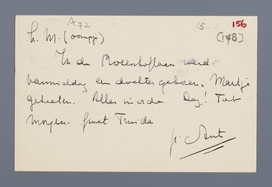 A 22
15
156
[178]
L. M. (oompp)
In de Rozenhoflaan werd
vanmiddag een dochter geboren, Martje
geheeten. Alles in orde. Dag! Tot
morgen. groet Truida
p. Aut